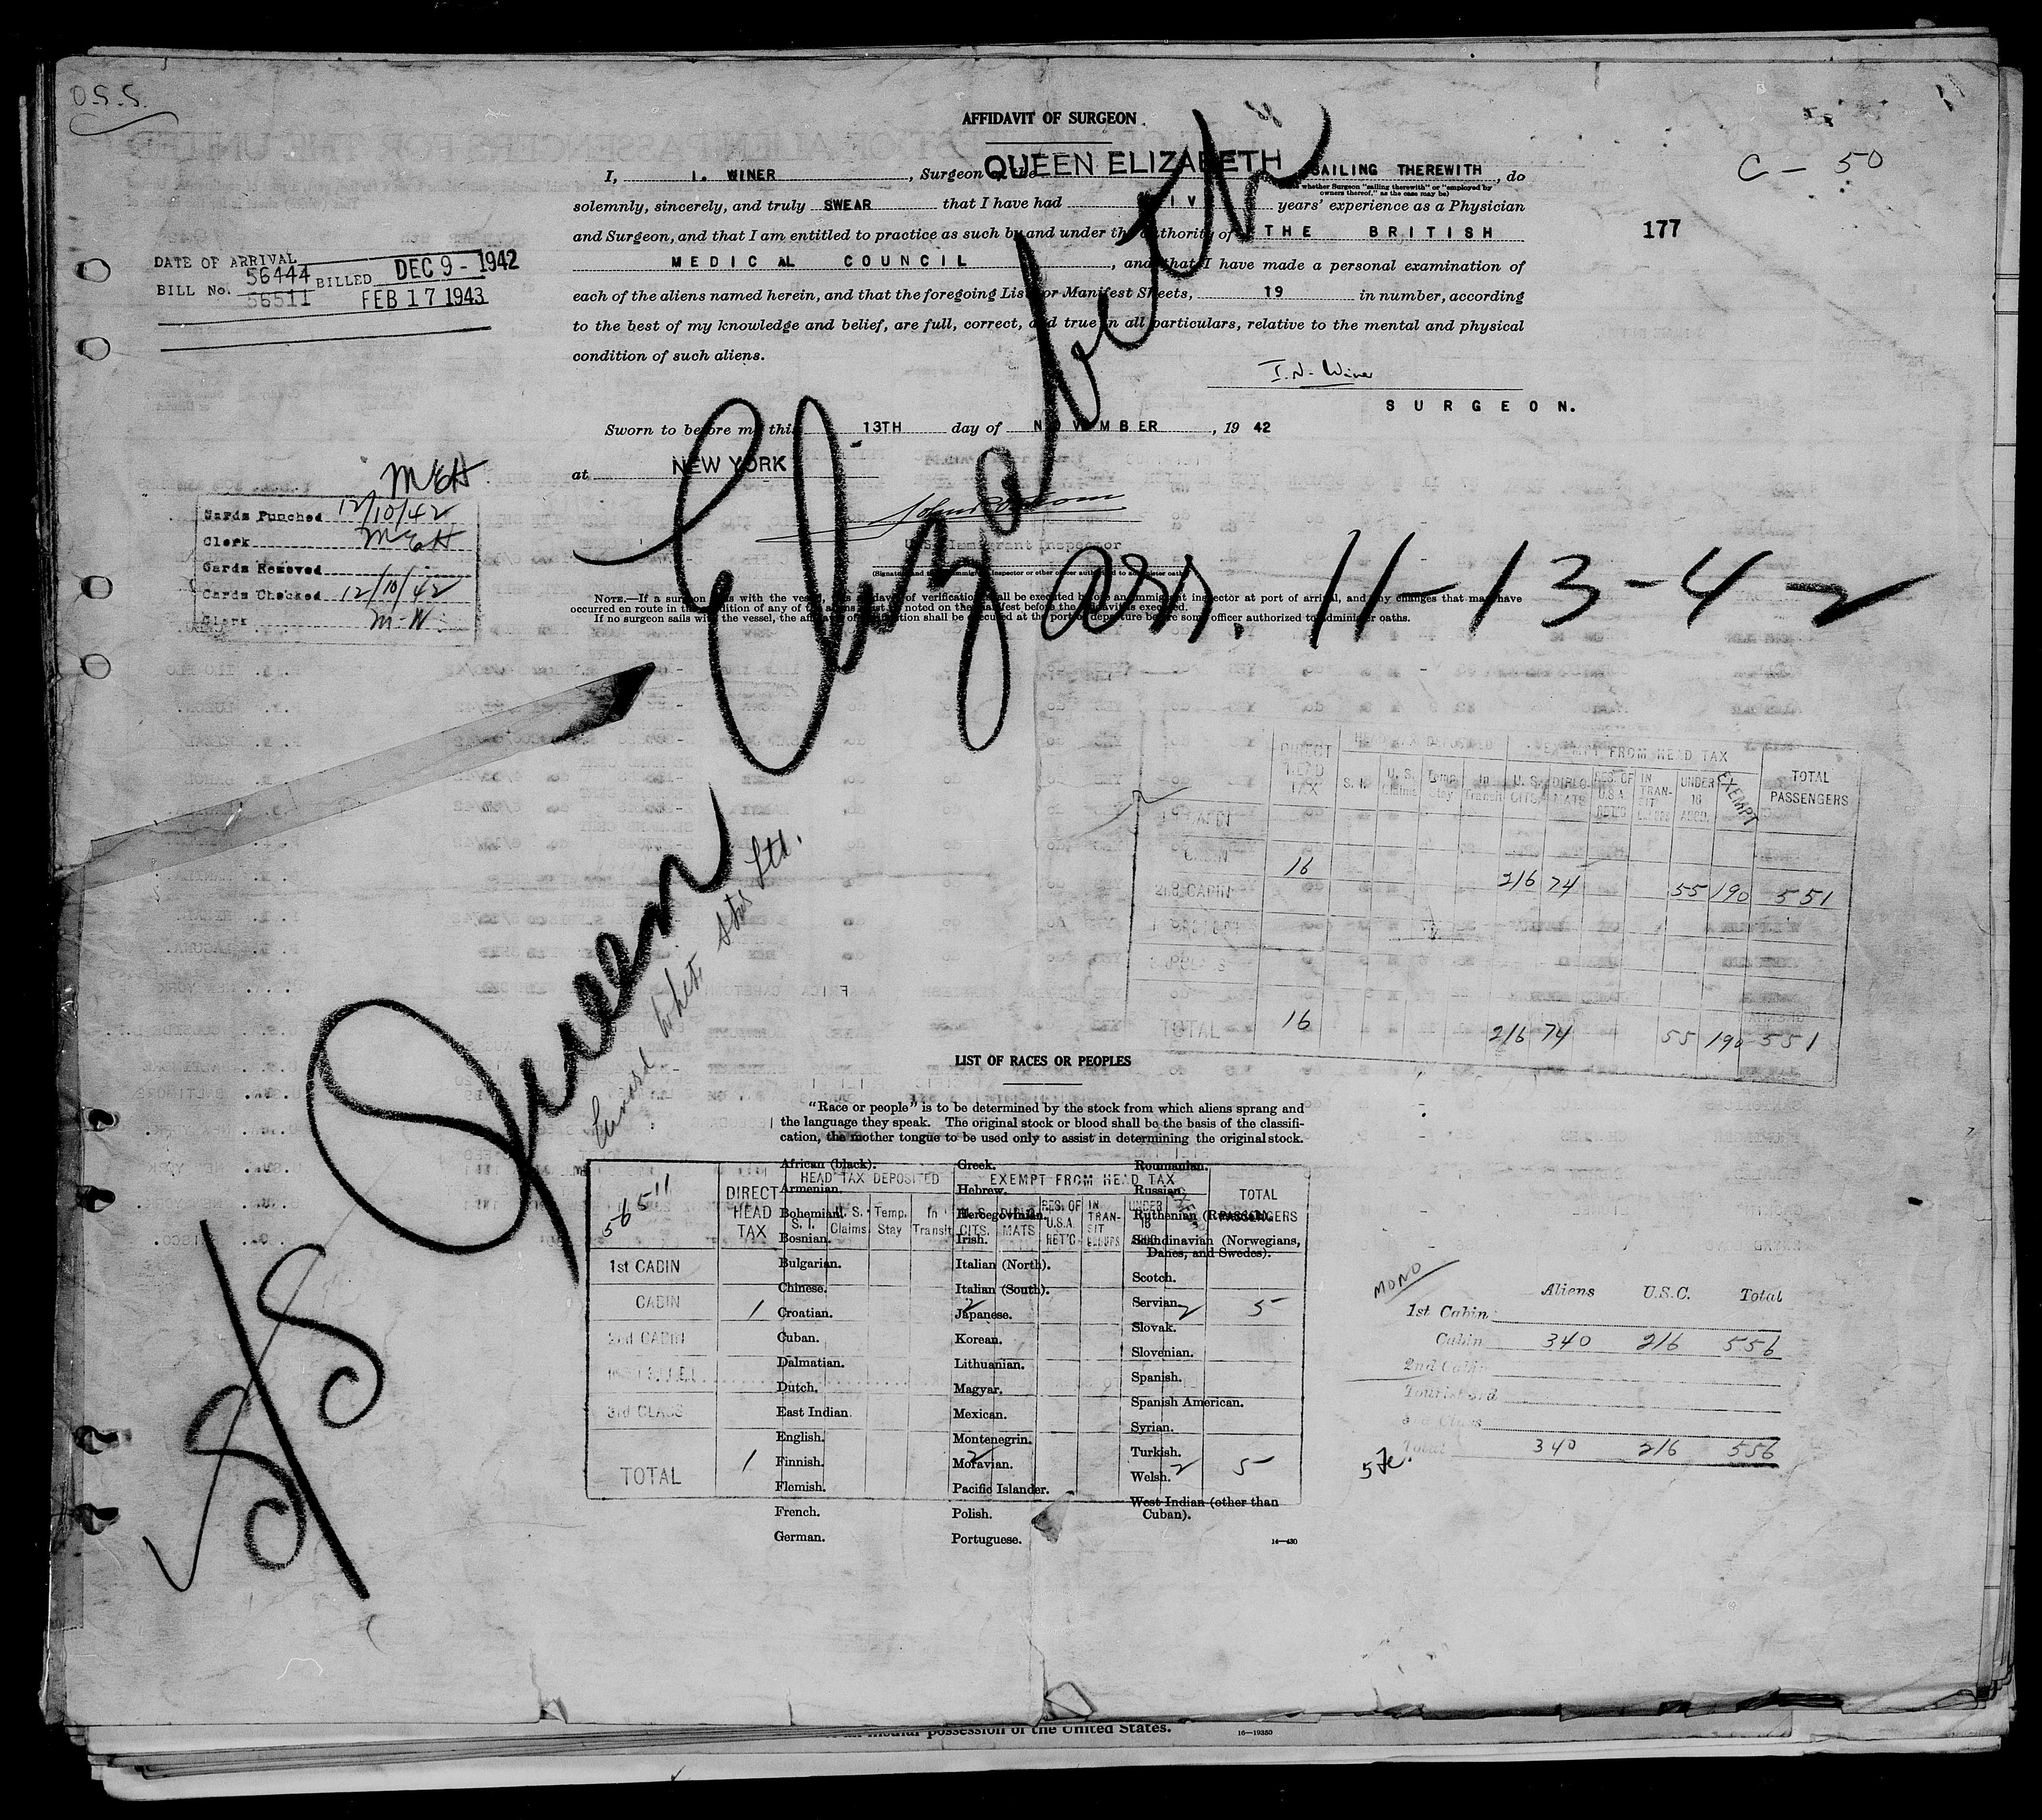 O.S.S.
AFFIDAVIT OF SURGEON
C - 50
177
I, I. WINER, Surgeon of the QUEEN ELIZABETH SAILING THEREWITH, do
whether Surgeon "sailing therewith" or "employed by
owners thereof," as the case may be)
solemnly, sincerely, and truly SWEAR that I have had years' experience as a Physician
and Surgeon, and that I am entitled to practice as such by and under the authority of THE BRITISH
MEDICAL COUNCIL, and that I have made a personal examination of
each of the aliens named herein, and that the foregoing Lists or Manifest Sheets, 19 in number, according
to the best of my knowledge and belief, are full, correct, and true in all particulars, relative to the mental and physical
condition of such aliens.
I. N. Winer
SURGEON.
Sworn to before me this 13TH day of NOVEMBER, 19 42
at NEW YORK
U.S. Immigrant Inspector
NOTE.—If a surgeon sails with the vessel, this affidavit of verification shall be executed before an immigrant inspector at port of arrival, and any changes that may have
occurred en route in the condition of any of the aliens must be noted on the manifest before the affidavit is executed.
If no surgeon sails with the vessel, the affidavit of verification shall be executed at the port of departure before some officer authorized to administer oaths.
DATE OF ARRIVAL
BILL No. 56444 BILLED DEC 9 - 1942
56511 FEB 17 1943
MEH
Cards Punched 12/10/42
Clerk MEH
Cards Removed
Cards Checked 12/10/42
Clerk M-W
S/S Queen Elizabeth
arr. 11-13-42
Cunard White Star Ltd.
DIRECT HEAD TAX
HEAD TAX DEPOSITED
EXEMPT FROM HEAD TAX
TOTAL PASSENGERS
S. I. U. S. Claims Temp. Stay In Transit U. S. CITS. DIPLO-MATS RES. OF U.S.A. RET'G IN TRAN-SIT UNDER 16 ACCD. EXEMPT
CABIN 16 216 74 55 190 551
2nd CABIN
TOTAL 16 216 74 55 190 551
LIST OF RACES OR PEOPLES
"Race or people" is to be determined by the stock from which aliens sprang and
the language they speak. The original stock or blood shall be the basis of the classifi-
cation, the mother tongue to be used only to assist in determining the original stock.
African (black).
Armenian.
Bohemian.
Bosnian.
Bulgarian.
Chinese.
Croatian.
Cuban.
Dalmatian.
Dutch.
East Indian.
English.
Finnish.
Flemish.
French.
German.
Greek.
Hebrew.
Hercegovinian.
Irish.
Italian (North).
Italian (South).
Japanese.
Korean.
Lithuanian.
Magyar.
Mexican.
Montenegrin.
Moravian.
Pacific Islander.
Polish.
Portuguese.
Roumanian.
Russian.
Ruthenian (Russniak).
Scandinavian (Norwegians,
Danes, and Swedes).
Scotch.
Servian.
Slovak.
Slovenian.
Spanish.
Spanish American.
Syrian.
Turkish.
Welsh.
West Indian (other than
Cuban).
14—430
56511
DIRECT HEAD TAX
HEAD TAX DEPOSITED
EXEMPT FROM HEAD TAX
TOTAL PASSENGERS
S. I. U. S. Claims Temp. Stay In Transit U. S. CITS. DIPLO-MATS RES. OF U.S.A. RET'G IN TRAN-SIT
1st CABIN
CABIN 1 2 2 5
2nd CABIN
3rd CLASS
TOTAL 1 2 2 5
MONO
Aliens U.S.C. Total
1st Cabin
Cabin 340 216 556
2nd Cabin
Tourist 3rd
3rd Class
Total 340 216 556
possession of the United States.
16—19350